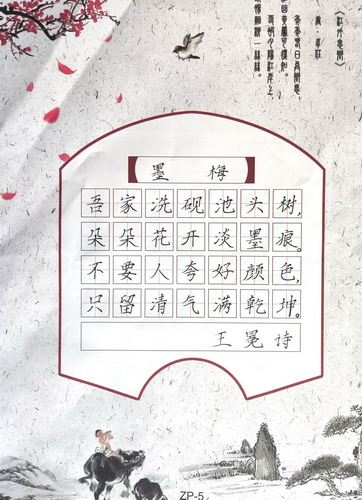 墨梅
吾家洗砚池头树,
朵朵花开淡墨痕。
不要人夸好颜色,
只留清气满乾坤。
王冕诗
ZP-5